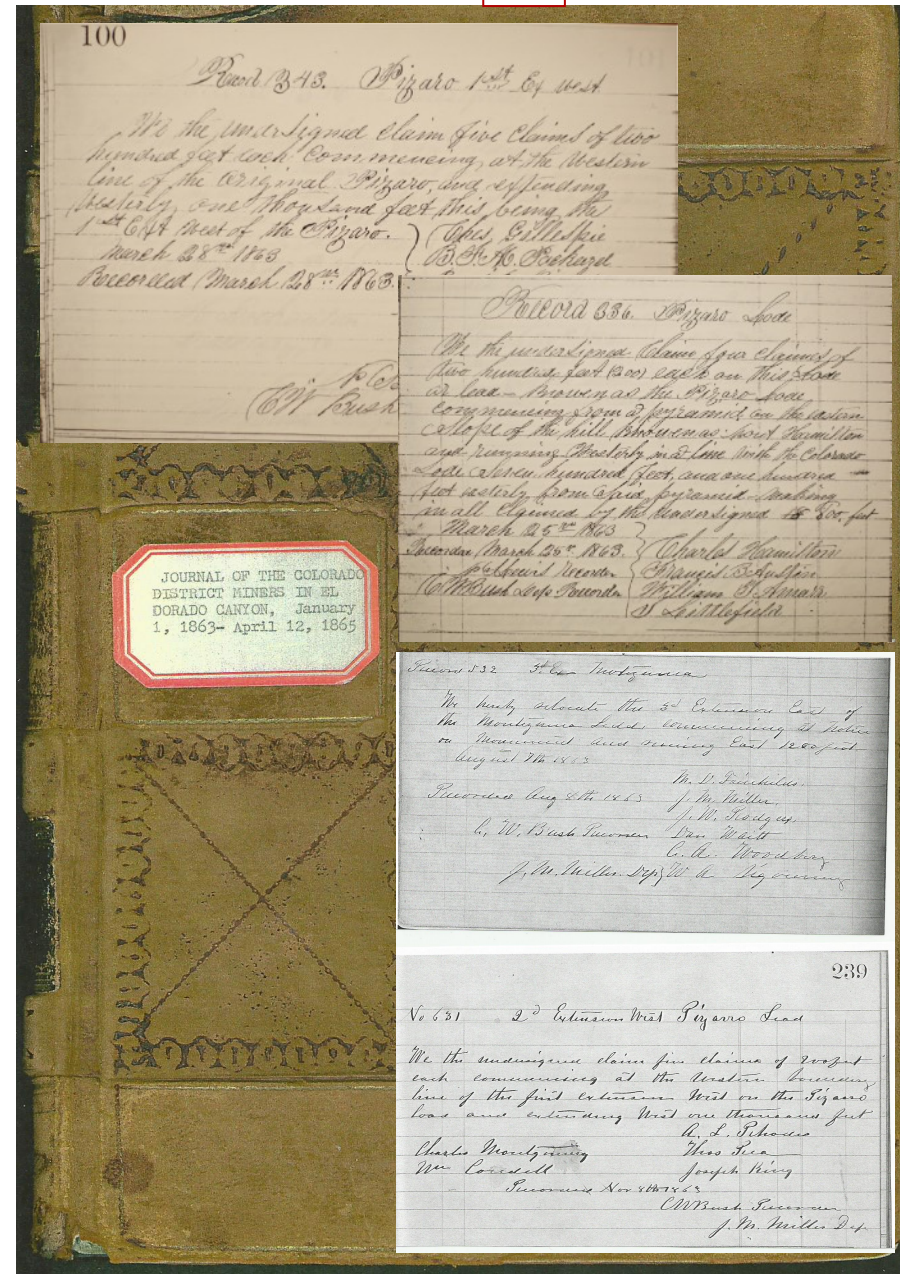 100
Record 343. Pizaro 1st Ex west
We the undersigned claim five claims of two
hundred feet each commencing at the Western
line of the original Pizaro, and extending
Westerly one thousand feet this being the
1st Ext West of the Pizaro.
March 28th 1863
Recorded March 28th 1863.
Thos. Gillespie
B. F. H.
C W Bush
Record 336. Pizaro Lode
We the undersigned Claim four claims of
two hundred feet (200) each on this Lode
or lead - known as the Pizaro Lode
commencing from a pyramid on the eastern
slope of the hill known as Hamilton
and running Westerly in a line with the Colorado
Lode seven hundred feet, and one hundred
feet easterly from said pyramid making
in all claimed by the undersigned 800 feet
March 25th 1863
Recorded March 25th 1863.
Recorder
C W Bush Dep Recorder
Charles Hamilton
Francis B. Austin
William S.
S Littlefield
JOURNAL OF THE COLORADO
DISTRICT MINERS IN EL
DORADO CANYON, January
1, 1863- April 12, 1865
Record 532 3d Ex Motezuma
We hereby relocate the 3d Extension East of
the Montezuma Lead commencing at Notice
on Monument and running East 1200 feet
August 7th 1863
Recorded Aug 8th 1863
C. W. Bush Recorder
J. M. Miller Dep
M. D. Fairchilds.
J. M. Miller
J. W. Rodgers
Dan Waitt
C. A. Woodbery
W A
239
No 631 2d Extension West Pizarro Lead
We the undersigned claim five claims of 200 feet
each commencing at the Western boundry
line of the first extension West on the Pizarro
and extending West one thousand feet
A. L. Rhodes
Charles Montgomery Thos Rea
Wm Joseph King
Recorded Nov 8th 1863
C W Bush Recorder
J. M. Miller Dep